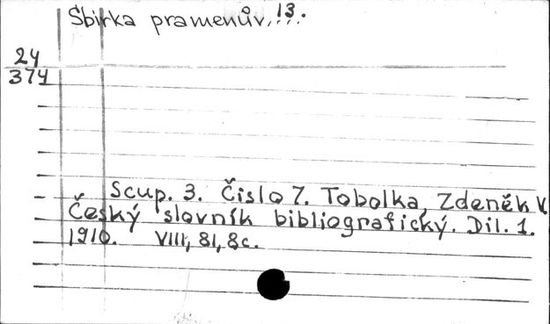 Sbirka pramenův...13.
24
374
Scup. 3. Čislo 7. Tobolka, Zdeněk V.
Český slovník bibliografický. Dil. 1.
1910. VIII, 81, 8c.